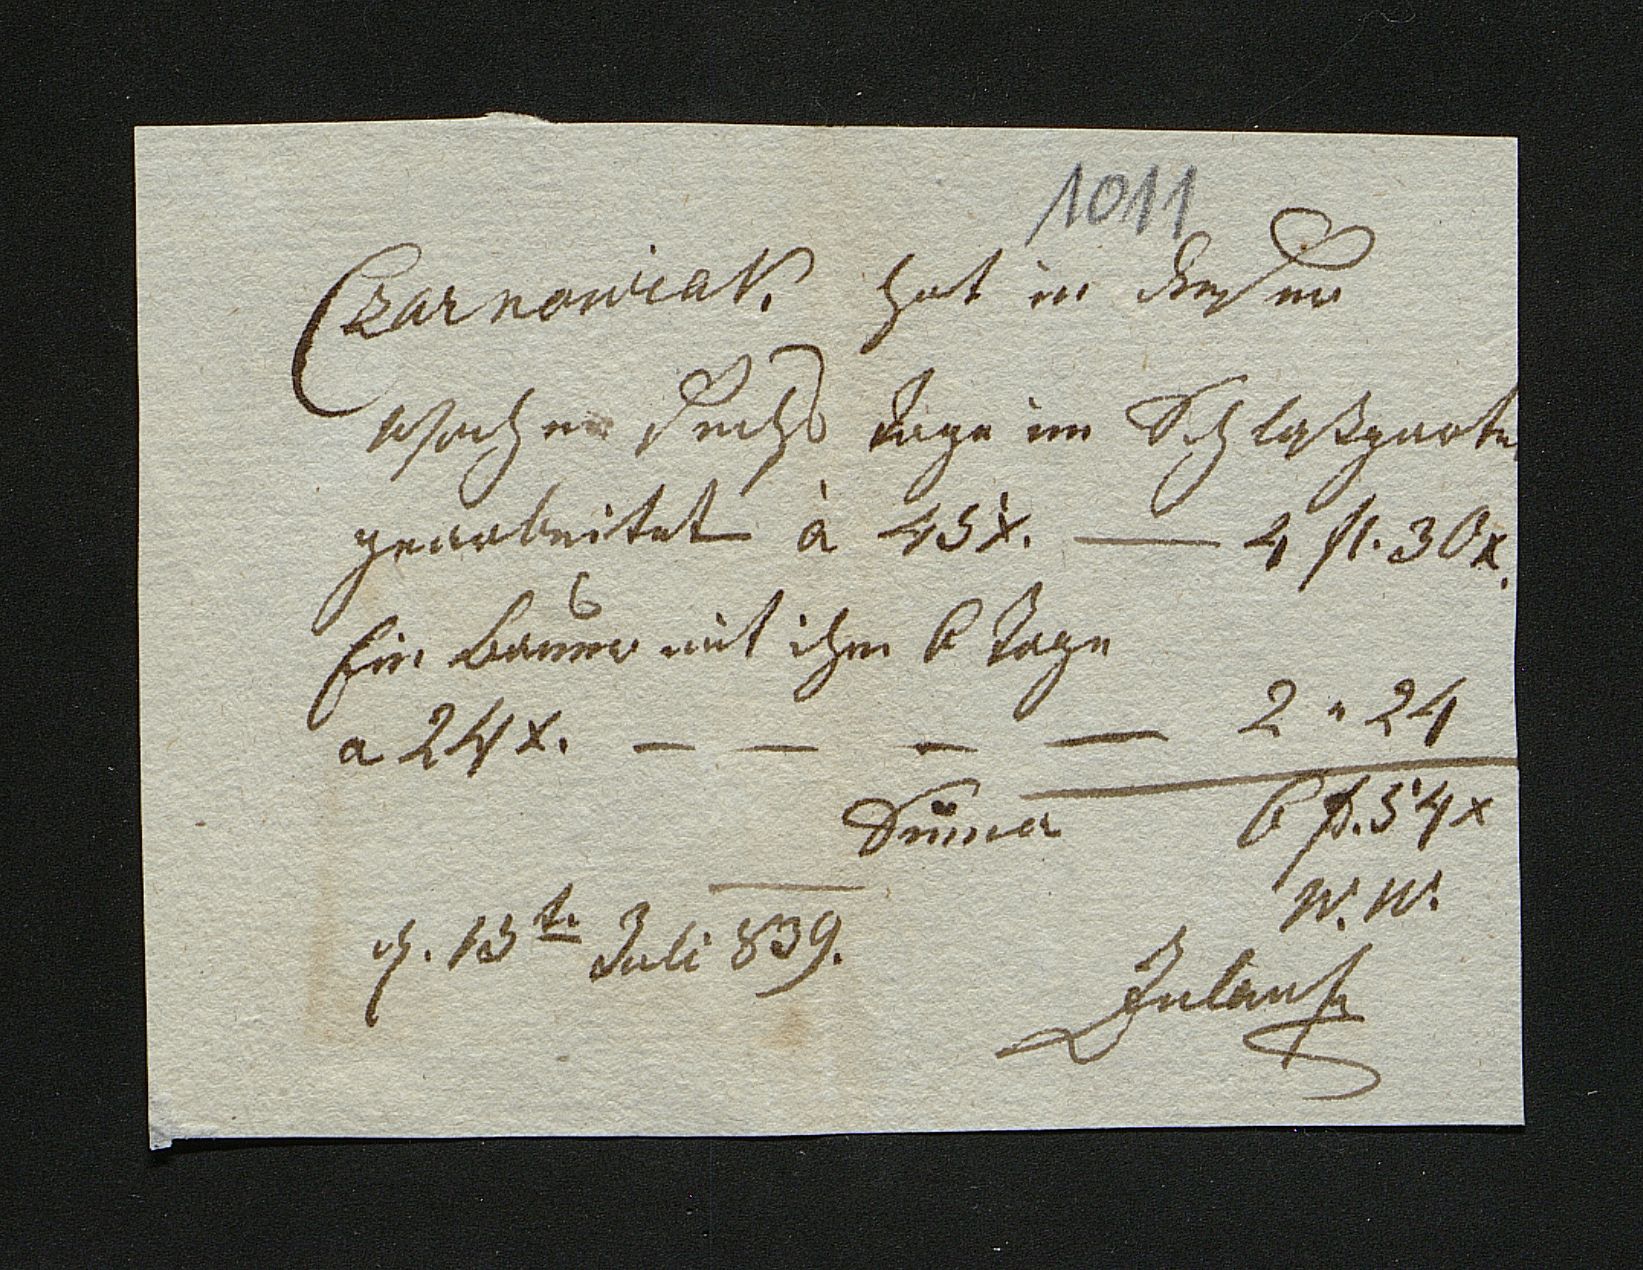 1011
Czarnowiak. hat in dieser
Woche sechs Tage im Schloßgarten
gearbeitet à 45 x. — 4 fl. 30 x.
Ein Bauer mit ihm 6 Tage
a 24 x. — — — — 2 " 24
Summa 6 fl. 54 x
W. W.
d. 13te Juli 839.
Zulauf